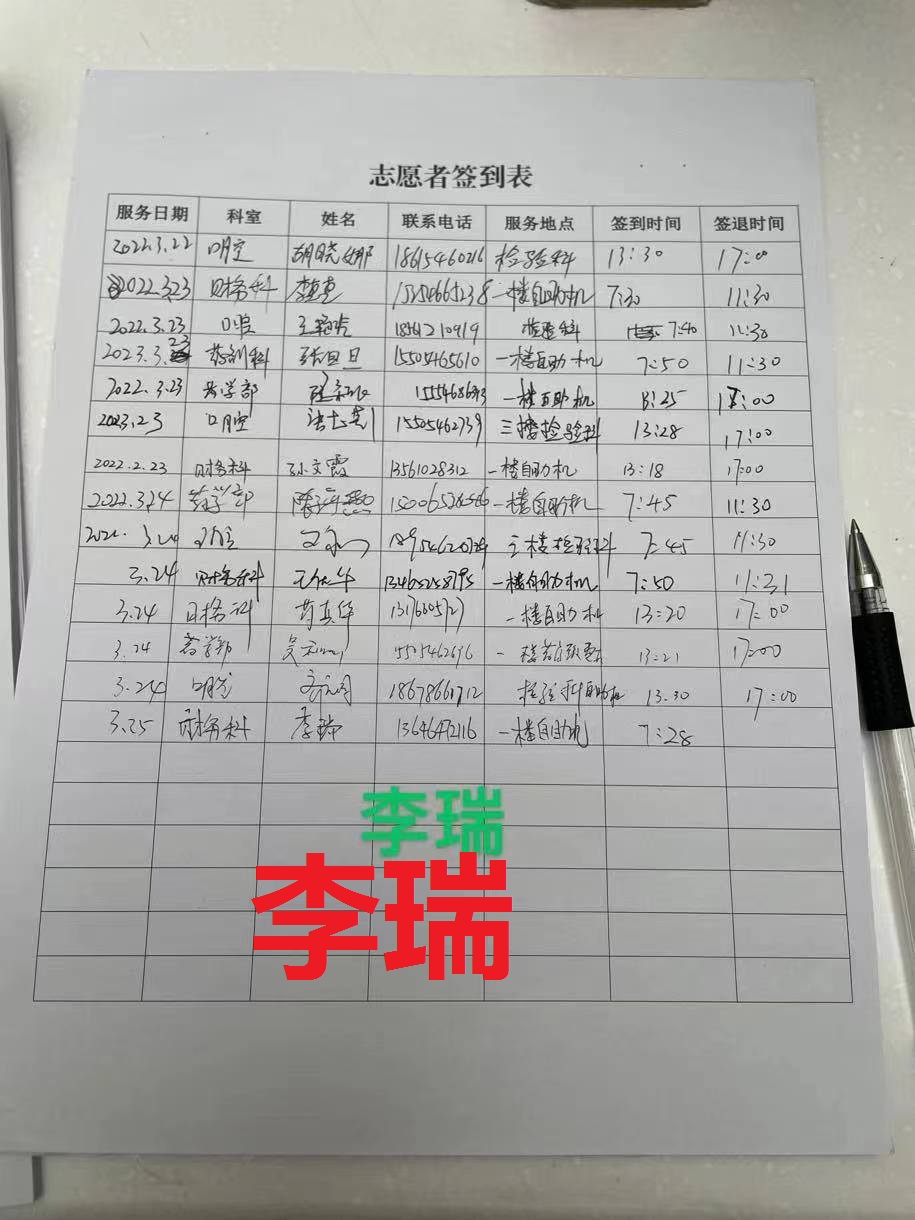 志愿者签到表
服务日期 科室 姓名 联系电话 服务地点 签到时间 签退时间
2022.3.22 口腔 胡晓娜 18615460216 检验科 13:30 17:00
2022.3.23 财务科 15254665238 一楼自助机 7:30 11:30
2022.3.23 口腔 检验科 7:40 11:30
2023.3.23 药剂科 张旦旦 15505465610 一楼自助机 7:50 11:30
2022.3.23 药学部 一楼自助机 13:25 17:00
2023.23 口腔 15505462739 三楼检验科 13:28 17:00
2022.2.23 财务科 孙文霞 13561028312 一楼自助机 13:18 17:00
2022.3.24 药学部 一楼自助机 7:45 11:30
口腔 三楼检验科 7:45 11:30
3.24 财务科 13465258795 一楼自助机 7:50 11:31
3.24 财务科 一楼自助机 13:20 17:00
3.24 药学部 13:21 17:00
3.24 口腔 18678661712 13.30 17:00
3.25 财务科 李瑞 13646472116 一楼自助机 7:28
李瑞
李瑞